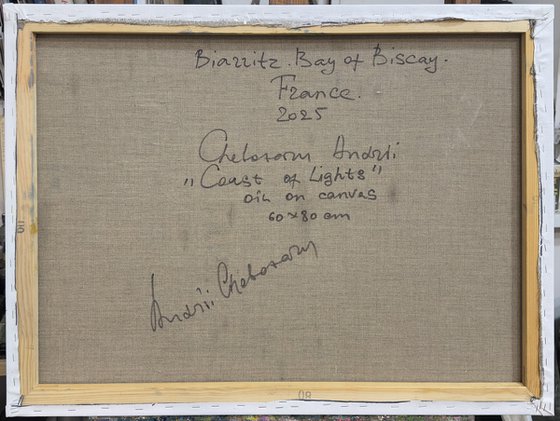 Biarritz. Bay of Biscay.
France.
2025
Chebotaru Andrii
„Coast of Lights"
oil on canvas
60x80 cm
Andrii Chebotaru
80